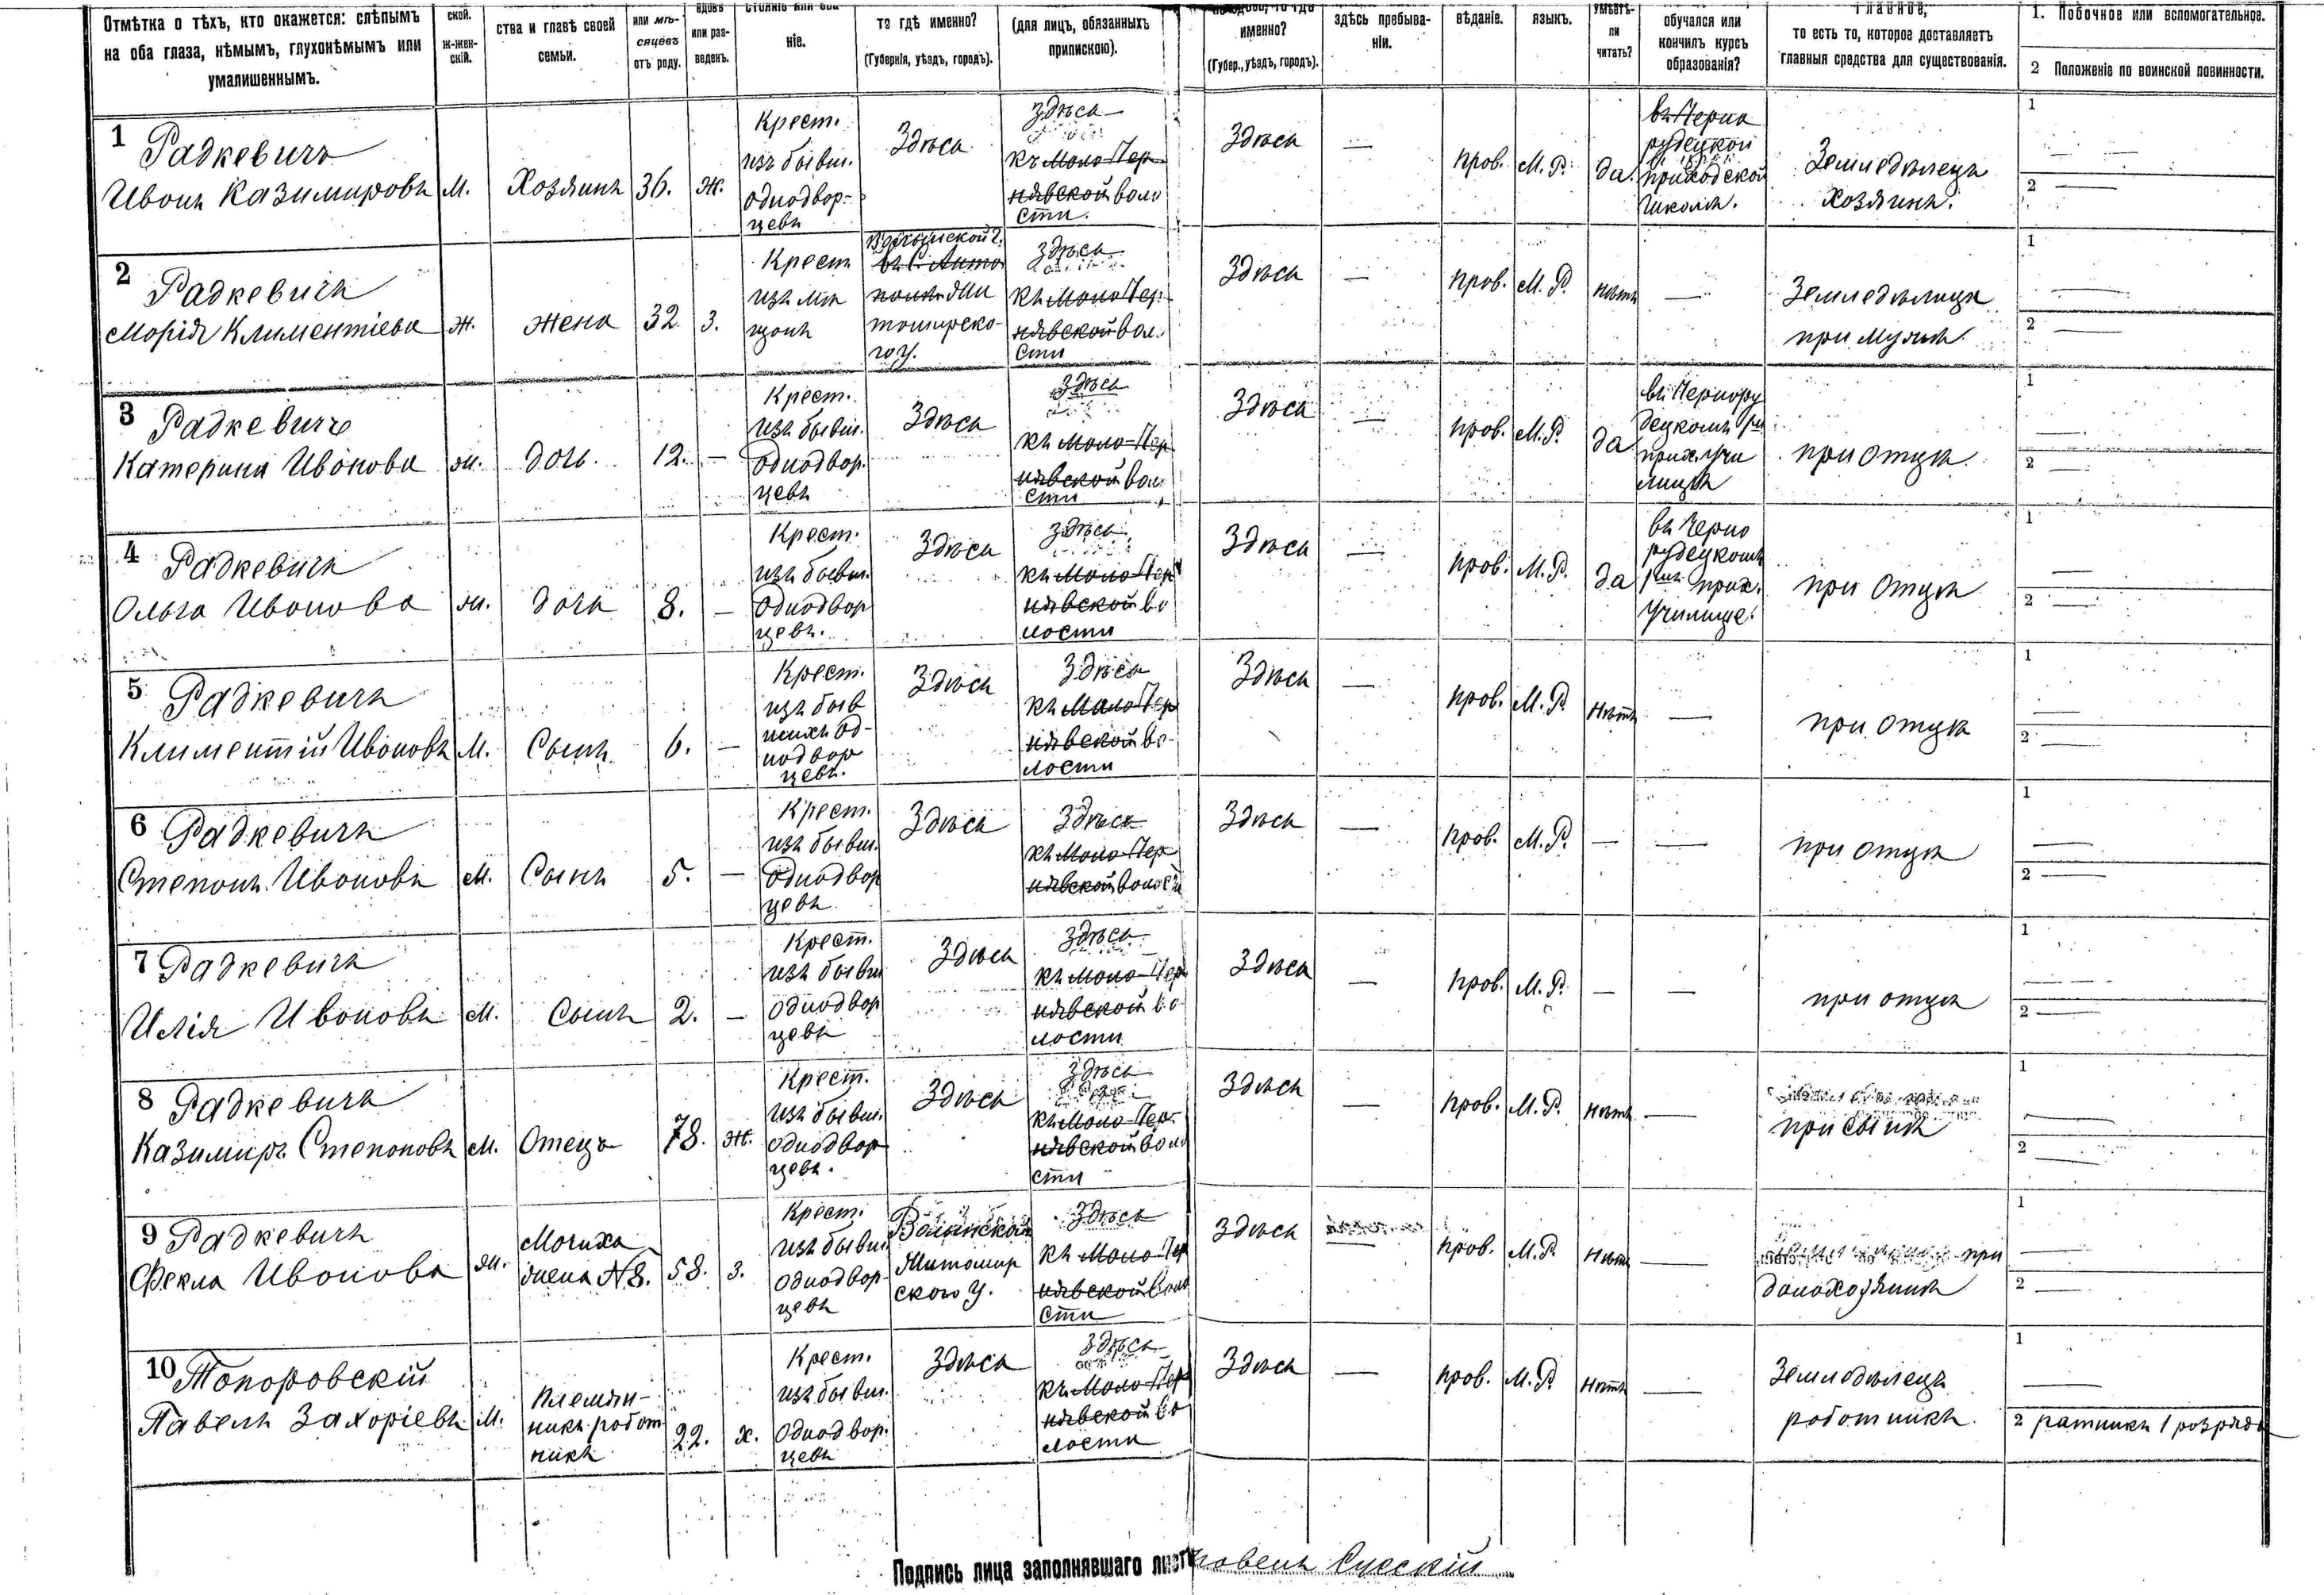 Отмѣтка о тѣхъ, кто окажется: слѣпымъ
на оба глаза, нѣмымъ, глухонѣмымъ или
умалишеннымъ.
ской.
ж-жен-
скій.
ства и главѣ своей
семьи.
или мѣ-
сяцевъ
отъ роду.
вдовъ
или раз-
веденъ.
ніе.
то гдѣ именно?
(Губернія, уѣздъ, городъ).
(для лицъ, обязанныхъ
припискою).
именно?
(Губер., уѣздъ, городъ).
здѣсь пребыва-
ніи.
вѣданіе.
языкъ.
умѣетъ-
ли
читать?
обучался или
кончилъ курсъ
образованія?
главное,
то есть то, которое доставляетъ
главныя средства для существованія.
1. Побочное или вспомогательное.
2 Положеніе по воинской повинности.
1 Радкевичъ
Ивонъ Казимировъ
М.
Хозяинъ
36.
ж.
Крест.
изъ бывш.
однодвор-
цевъ
Здѣсь
Здѣсь
къ Мало-Чер
нявской воло
сти.
Здѣсь
—
прав.
М. Р.
да.
въ Черно
рудецкой
приходской
школѣ.
Земледѣлецъ
хозяинъ.
1
2
2 Радкевичъ
Марія Климентіева
ж.
жена
32
з.
Крест
изъ мѣ
щанъ
Волынской г.
Житомирско-
го у.
Здѣсь
къ Мало Чер
нявской вол.
сти
Здѣсь
—
прав.
М. Р.
нѣтъ
—
Земледѣлица
при мужѣ.
1
2
3 Радкевичъ
Катерина Ивонова
ж.
дочь.
12.
—
Крест.
изъ бывш.
однодвор.
цевъ
Здѣсь
Здѣсь
къ Мало-Чер
нявской вол
сти
Здѣсь
—
прав.
М. Р.
да
въ Чернору
децкомъ
прих. учи
лищѣ
при отцѣ.
1
2
4 Радкевичъ
Ольга Ивонова
ж.
дочь
8.
—
Крест.
изъ бывш.
однодвор
цевъ.
Здѣсь
Здѣсь
къ Мало-Чер
нявской во
лости
Здѣсь
—
прав.
М. Р.
да
въ Черно
рудецкомъ
прих.
училище.
при отцѣ
1
2
5 Радкевичъ
Климентій Ивоновъ
М.
Сынъ
6.
—
Крест.
изъ быв
шихъ од-
нодвор
цевъ.
Здѣсь
Здѣсь
къ Мало Чер
нявской во-
лости
Здѣсь
—
прав.
М. Р.
нѣтъ
—
при отцѣ
1
2
6 Радкевичъ
Степонъ Ивоновъ
М.
Сынъ
5.
—
Крест.
изъ бывш.
однодвор
цевъ
Здѣсь
Здѣсь
къ Мало-Чер
нявской волос
Здѣсь
—
прав.
М. Р.
—
—
при отцѣ
1
2
7 Радкевичъ
Илія Ивоновъ
М.
Сынъ
2.
—
Крест.
изъ бывш
однодвор
цевъ
Здѣсь
Здѣсь
къ Мало-Чер
нявской во
лости
Здѣсь
—
прав.
М. Р.
—
—
при отцѣ
1
2
8 Радкевичъ
Казимиръ Степоновъ
М.
Отецъ
78.
ж.
Крест.
изъ бывш.
однодвор
цевъ.
Здѣсь
Здѣсь
къ Мало-Чер
нявской воло
сти
Здѣсь
—
прав.
М. Р.
нѣтъ
—
при сынѣ
1
2
9 Радкевичъ
Фекла Ивонова
ж.
Мочиха
жена №8.
58.
з.
Крест.
изъ бывш
однодвор-
цевъ
Волынской
Житомир
скаго у.
Здѣсь
къ Мало-Чер
нявской воло
сти
Здѣсь
—
прав.
М. Р.
нѣтъ
—
при
домохозяинѣ
1
2
10 Топоровскій
Павелъ Захоріевъ
М.
Племян-
никъ работ
никъ
22.
х.
Крест.
изъ бывш.
однодвор.
цевъ
Здѣсь
Здѣсь
къ Мало-Чер
нявской во
лости
Здѣсь
—
прав.
М. Р.
нѣтъ
—
Земледѣлецъ
работникъ.
1
2 ратникъ 1 розряда
Подпись лица заполнявшаго листъ